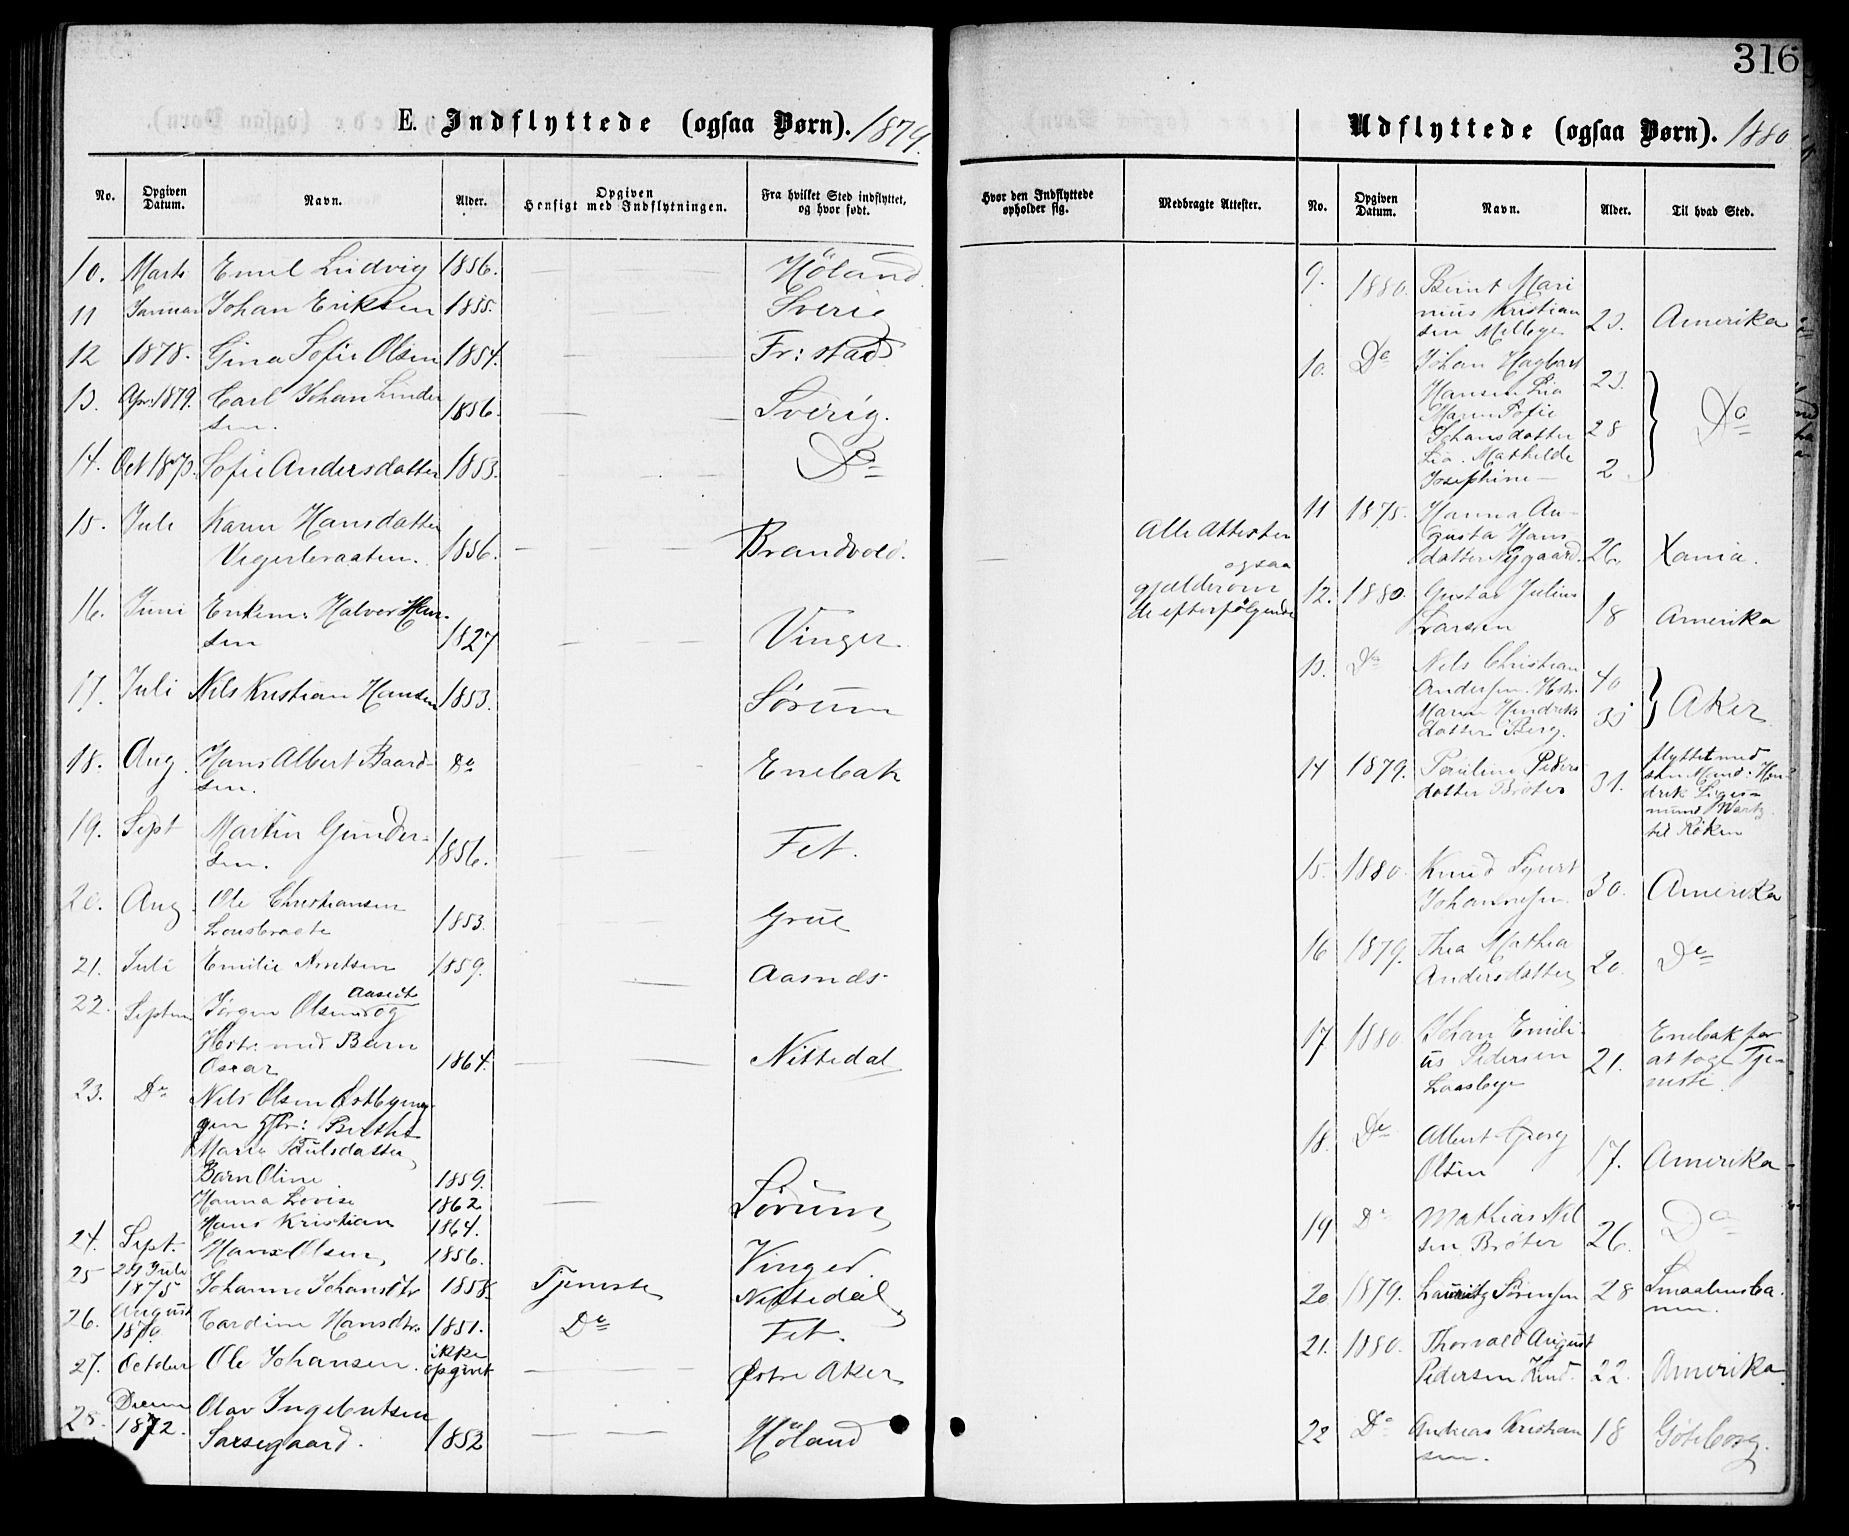 316
E. Indflyttede (ogsaa Børn). 1879.
No. Opgiven Datum. Navn. Alder. Opgiven Hensigt med Indflytningen. Fra hvilket Sted indflyttet, og hvor født.
10. Marts Emil Ludvig 1856. Höland
11 Januar Johan Eriksen 1855. Sverig
12 1878. Gina Sofie Olsen 1854. Fr: stad
13. Apr: 1879. Carl Johan Linder
sen. 1856. Sverig.
14. Oct Sofie Andersdatter 1853. Do
15. Juli Karen Hansdatter
1856. Brandvold.
16. Juni Enkem: Halvor Han-
sen 1827 Vinger
17. Juli Nils Kristian Hansen 1853. Sørum
18. Aug. Hans Albert Baard-
sen. Do Enebak
19. Sept Martin Gunder-
sen. 1856. Fet.
20. Aug. Ole Christiansen
1853. Grue
21. Juli Emilie Arntsen 1859. Aasnds
22. Septem Jørgen Olsen og
Hstr. med Barn
Oscar 1864. Nittedal
23. Do Nils Olsen
Hstr: Berthe
Marie Paulsdatter
Barn Oline 1859.
Hanna Lovise 1862
Hans Kristian 1864. Sørum
24. Sept. Hans Olsen 1856. Vinger
25 29 Juli
1875 Johanne Johansdtr 1858. Tjeneste Nittedal
26. August
1879 Cardine Hansdtr. 1851. Do Fet.
27. October Ole Johansen. ikke
opgivet Østre Aker
28. Decem
1872. Olav Ingebretsen
1852 Höland
Hvor den Indflyttede opholder sig. Medbragte Attester.
Alle Attester
ogsaa
gjælder om
de efterfølgende
Udflyttede (ogsaa Børn). 1880
No. Opgiven Datum. Navn. Alder. Til hvad Sted.
9. 1880. Bernt Mari
nius Kristian
sen Melbye 23. Amerika
10. Do Johan Hagbart
Hansen Lia 23.
Maren Sofie
Johansdatter 28 Do
Lia. Mathilde
Josephine 2
11 1875. Hanna Au-
gusta Hans
datter Nygaard. 26. Xania.
12. 1880. Gustav Julius
Larsen 18 Amerika
13. Do Nils Christian
Andersen. Hstr. 40
Maren Hendriks
datter Berg. 35 Aker
14 1879. Pauline Peders
datter Brøter 31. flyttet med
sin Mand: Hen
drik Sigis-
mund
til Röken
15. 1880. Knud Sjurt
Johannesen. 30. Amerika
16 1879. Thea Mathea
Andersdatter 20. Do
17. 1880. Johan Emili
us Pedersen
Laasbye 21. Enebak for
at tage Tje-
neste.
18. Do Albert Georg
Olsen 17. Amerika
19 Do Mathias Nil
sen Brøter 26. Do
20 1879. Lauritz Sörensen 28 Smaalensba
nen.
21. 1880. Thorvald August
Pedersen Lind. 22. Amerika
22 Do Andreas Kristian
sen. 18 Göteborg.